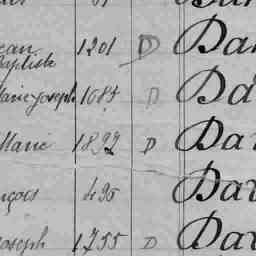 ean Baptiste 1201 D Da
Marie Joseph 1085 D Da
Marie 1892 D Da
nçois 495 Da
Joseph 1755 D Dav